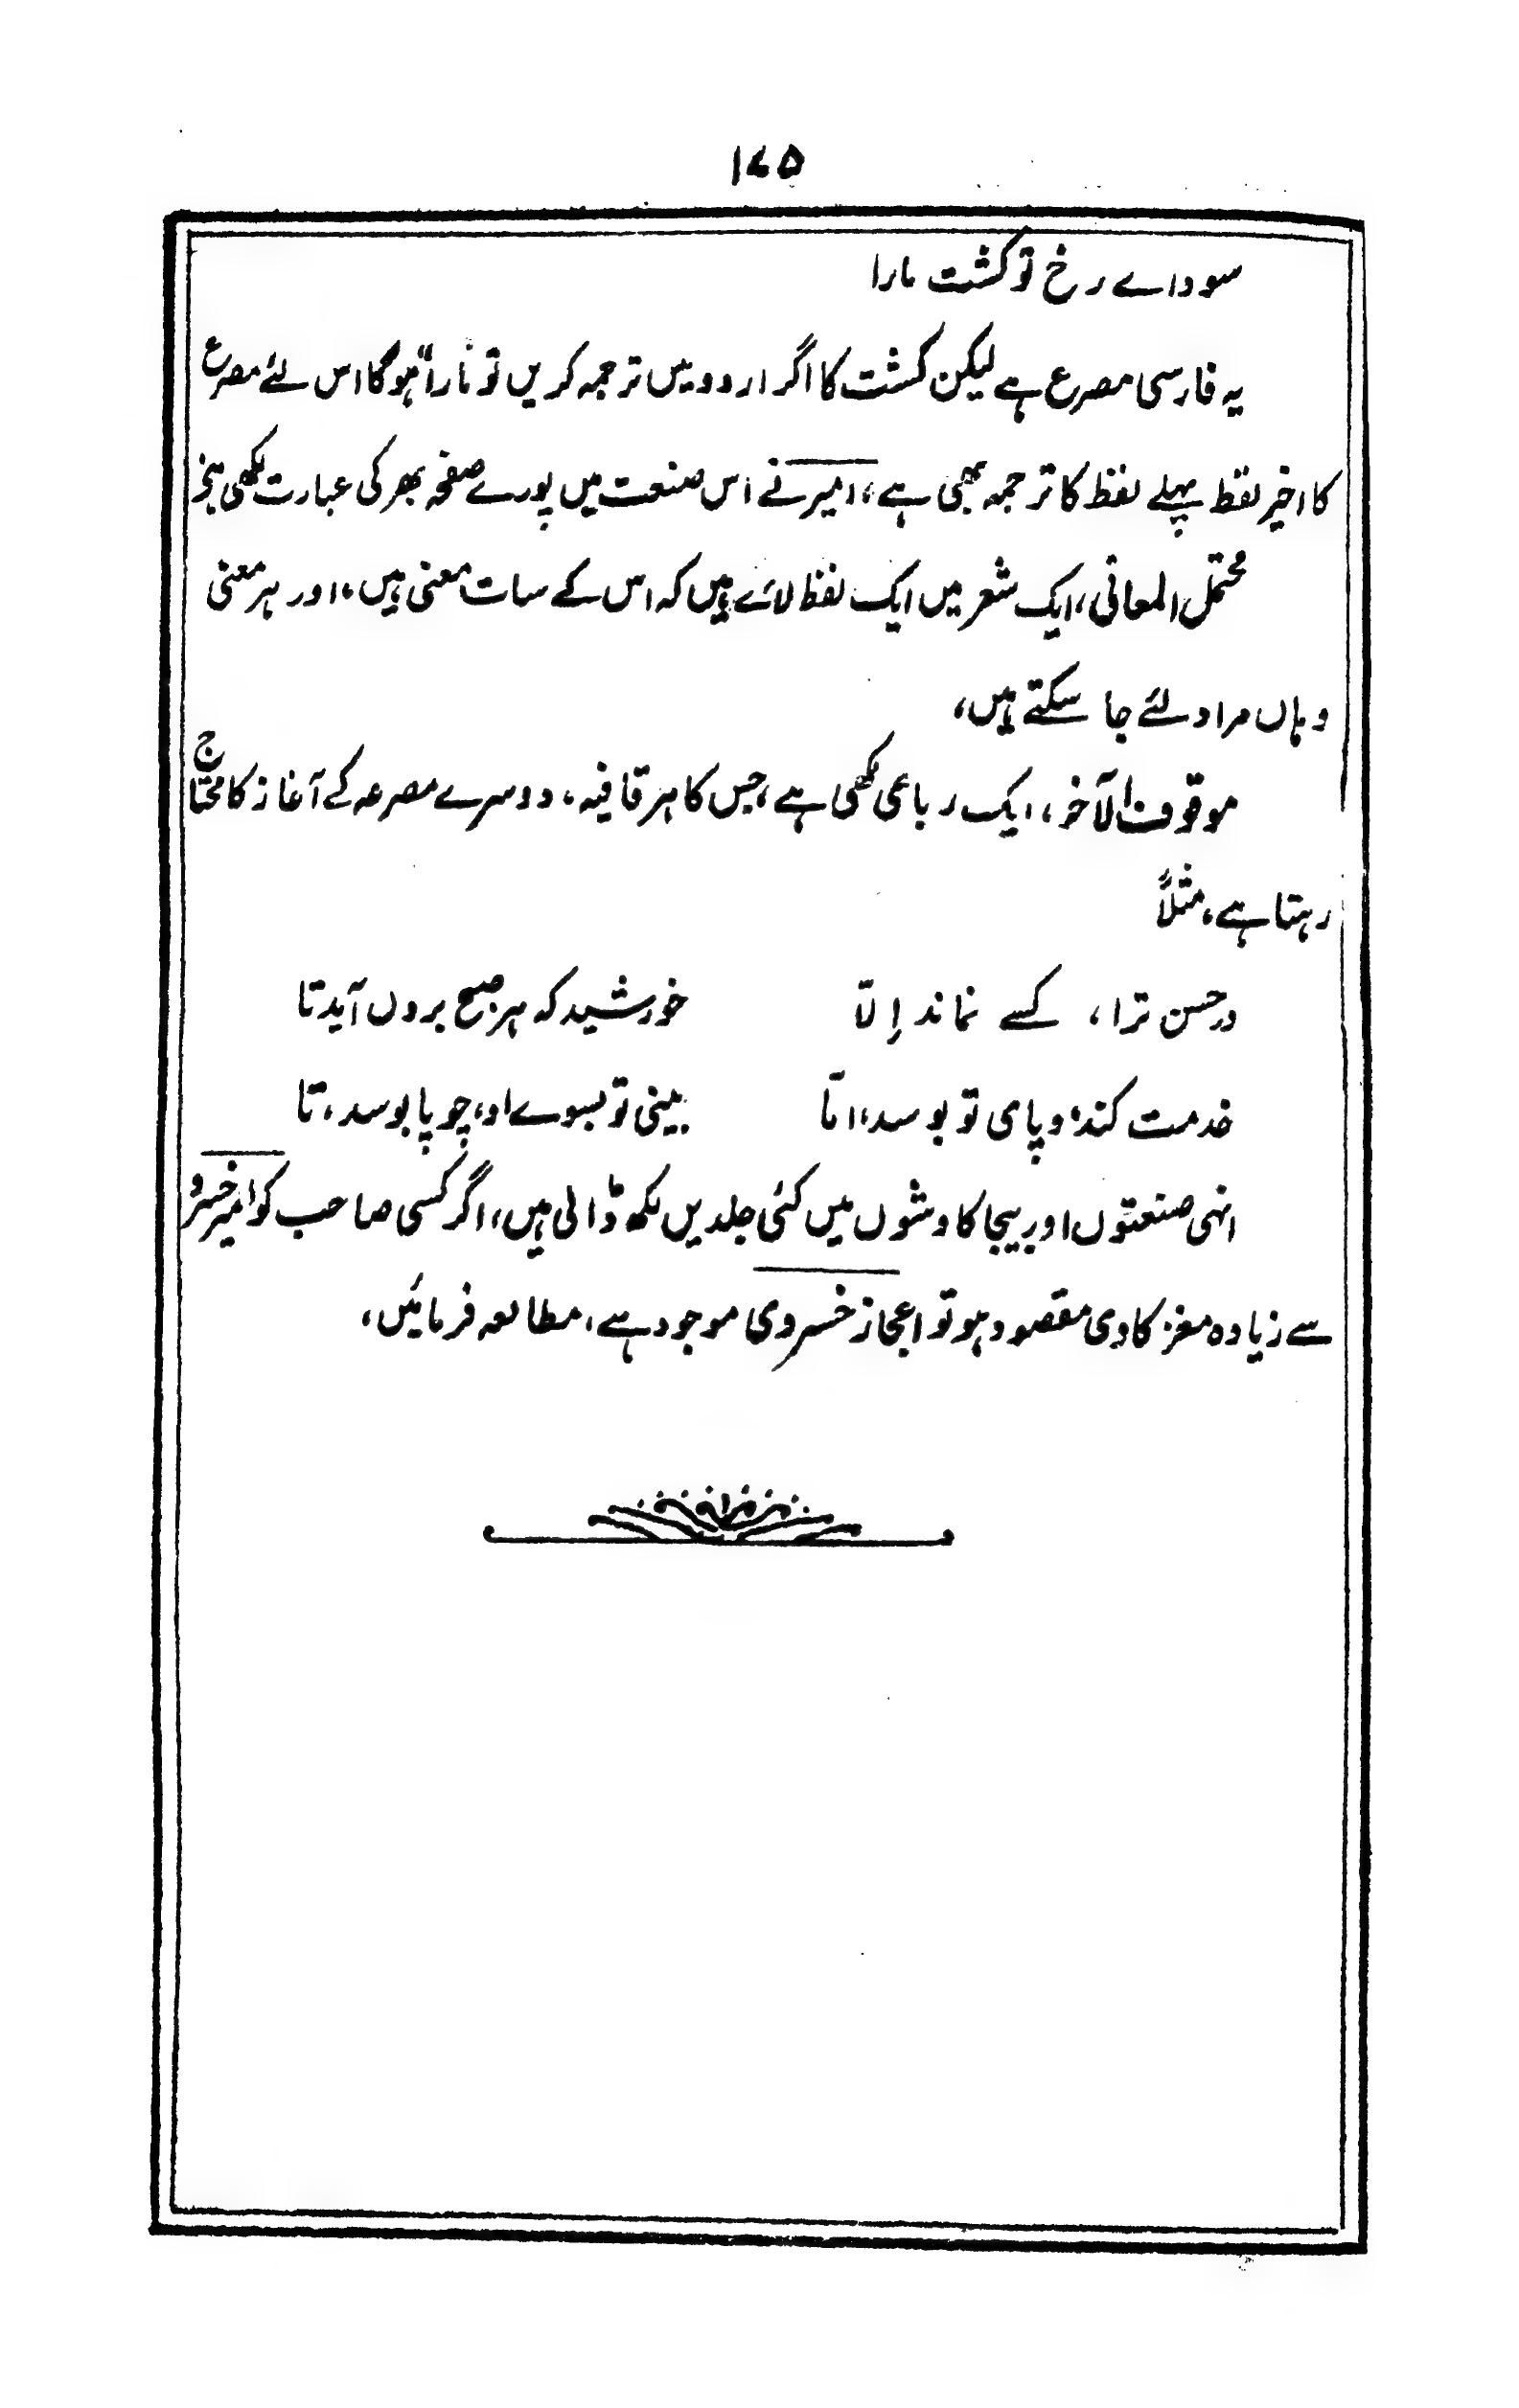 ۱۷۵
سوداے رخ تو کشت مارا
یہ فارسی مصرع ہے لیکن کشت کا اگر اردو میں ترجمہ کریں تو مارا ہوگا اس لئے مصرع
کا اخیر لفظ پہلے لفظ کا ترجمہ بھی ہے، امیر نے اس صنعت میں پورے صفحہ بھر کی عبارت لکھی ہے
محتمل المعانی، ایک شعر میں ایک لفظ لائے ہیں کہ اس کے سات معنی ہیں، اور ہر معنی
وہاں مراد لئے جا سکتے ہیں،
موقوف الآخر، ایک رباعی لکھی ہے، جس کا ہر قافیہ، دوسرے مصرعہ کے آغاز کا محتاج
رہتا ہے، مثلاً
درحسن ترا، کسے نماند اِلّا خورشید کہ ہر صبح بروں آید تا
خدمت کند و پای تو بوسد، امّا بینی تو بسوے او، چو پا بوسد، تا
انہی صنعتوں اور بیجا کاوشوں میں کئی جلدیں لکھ ڈالی ہیں، اگر کسی صاحب کو امیر خسرو
سے زیادہ مغز کاوی مقصود ہو تو اعجاز خسروی موجود ہے، مطالعہ فرمائیں،